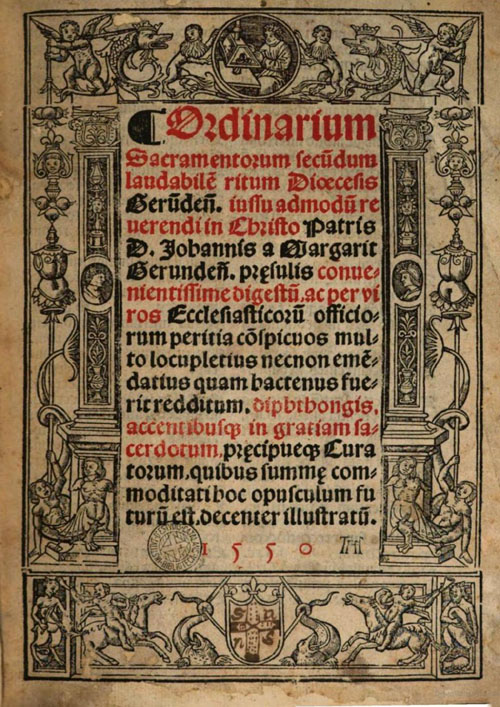 Ordinarium
Sacramentorum secũdum
laudabilẽ ritum Diœcesis
Gerũdeñ. iussu admodũ re
uerendi in Christo Patris
D. Johannis a Margarit
Gerundeñ. pręsulis conue-
nientissime digestũ, ac per vi
ros Ecclesiasticorũ officio-
rum peritia cõspicuos mul-
to locupletius necnon emẽ-
datius quam hactenus fue-
rit redditum. diphthongis,
accentibusqꝫ in gratiam sa-
cerdotum, pręcipueqꝫ Cura
torum, quibus summę com-
moditati hoc opusculum fu
turũ est, decenter illustratũ.
1550